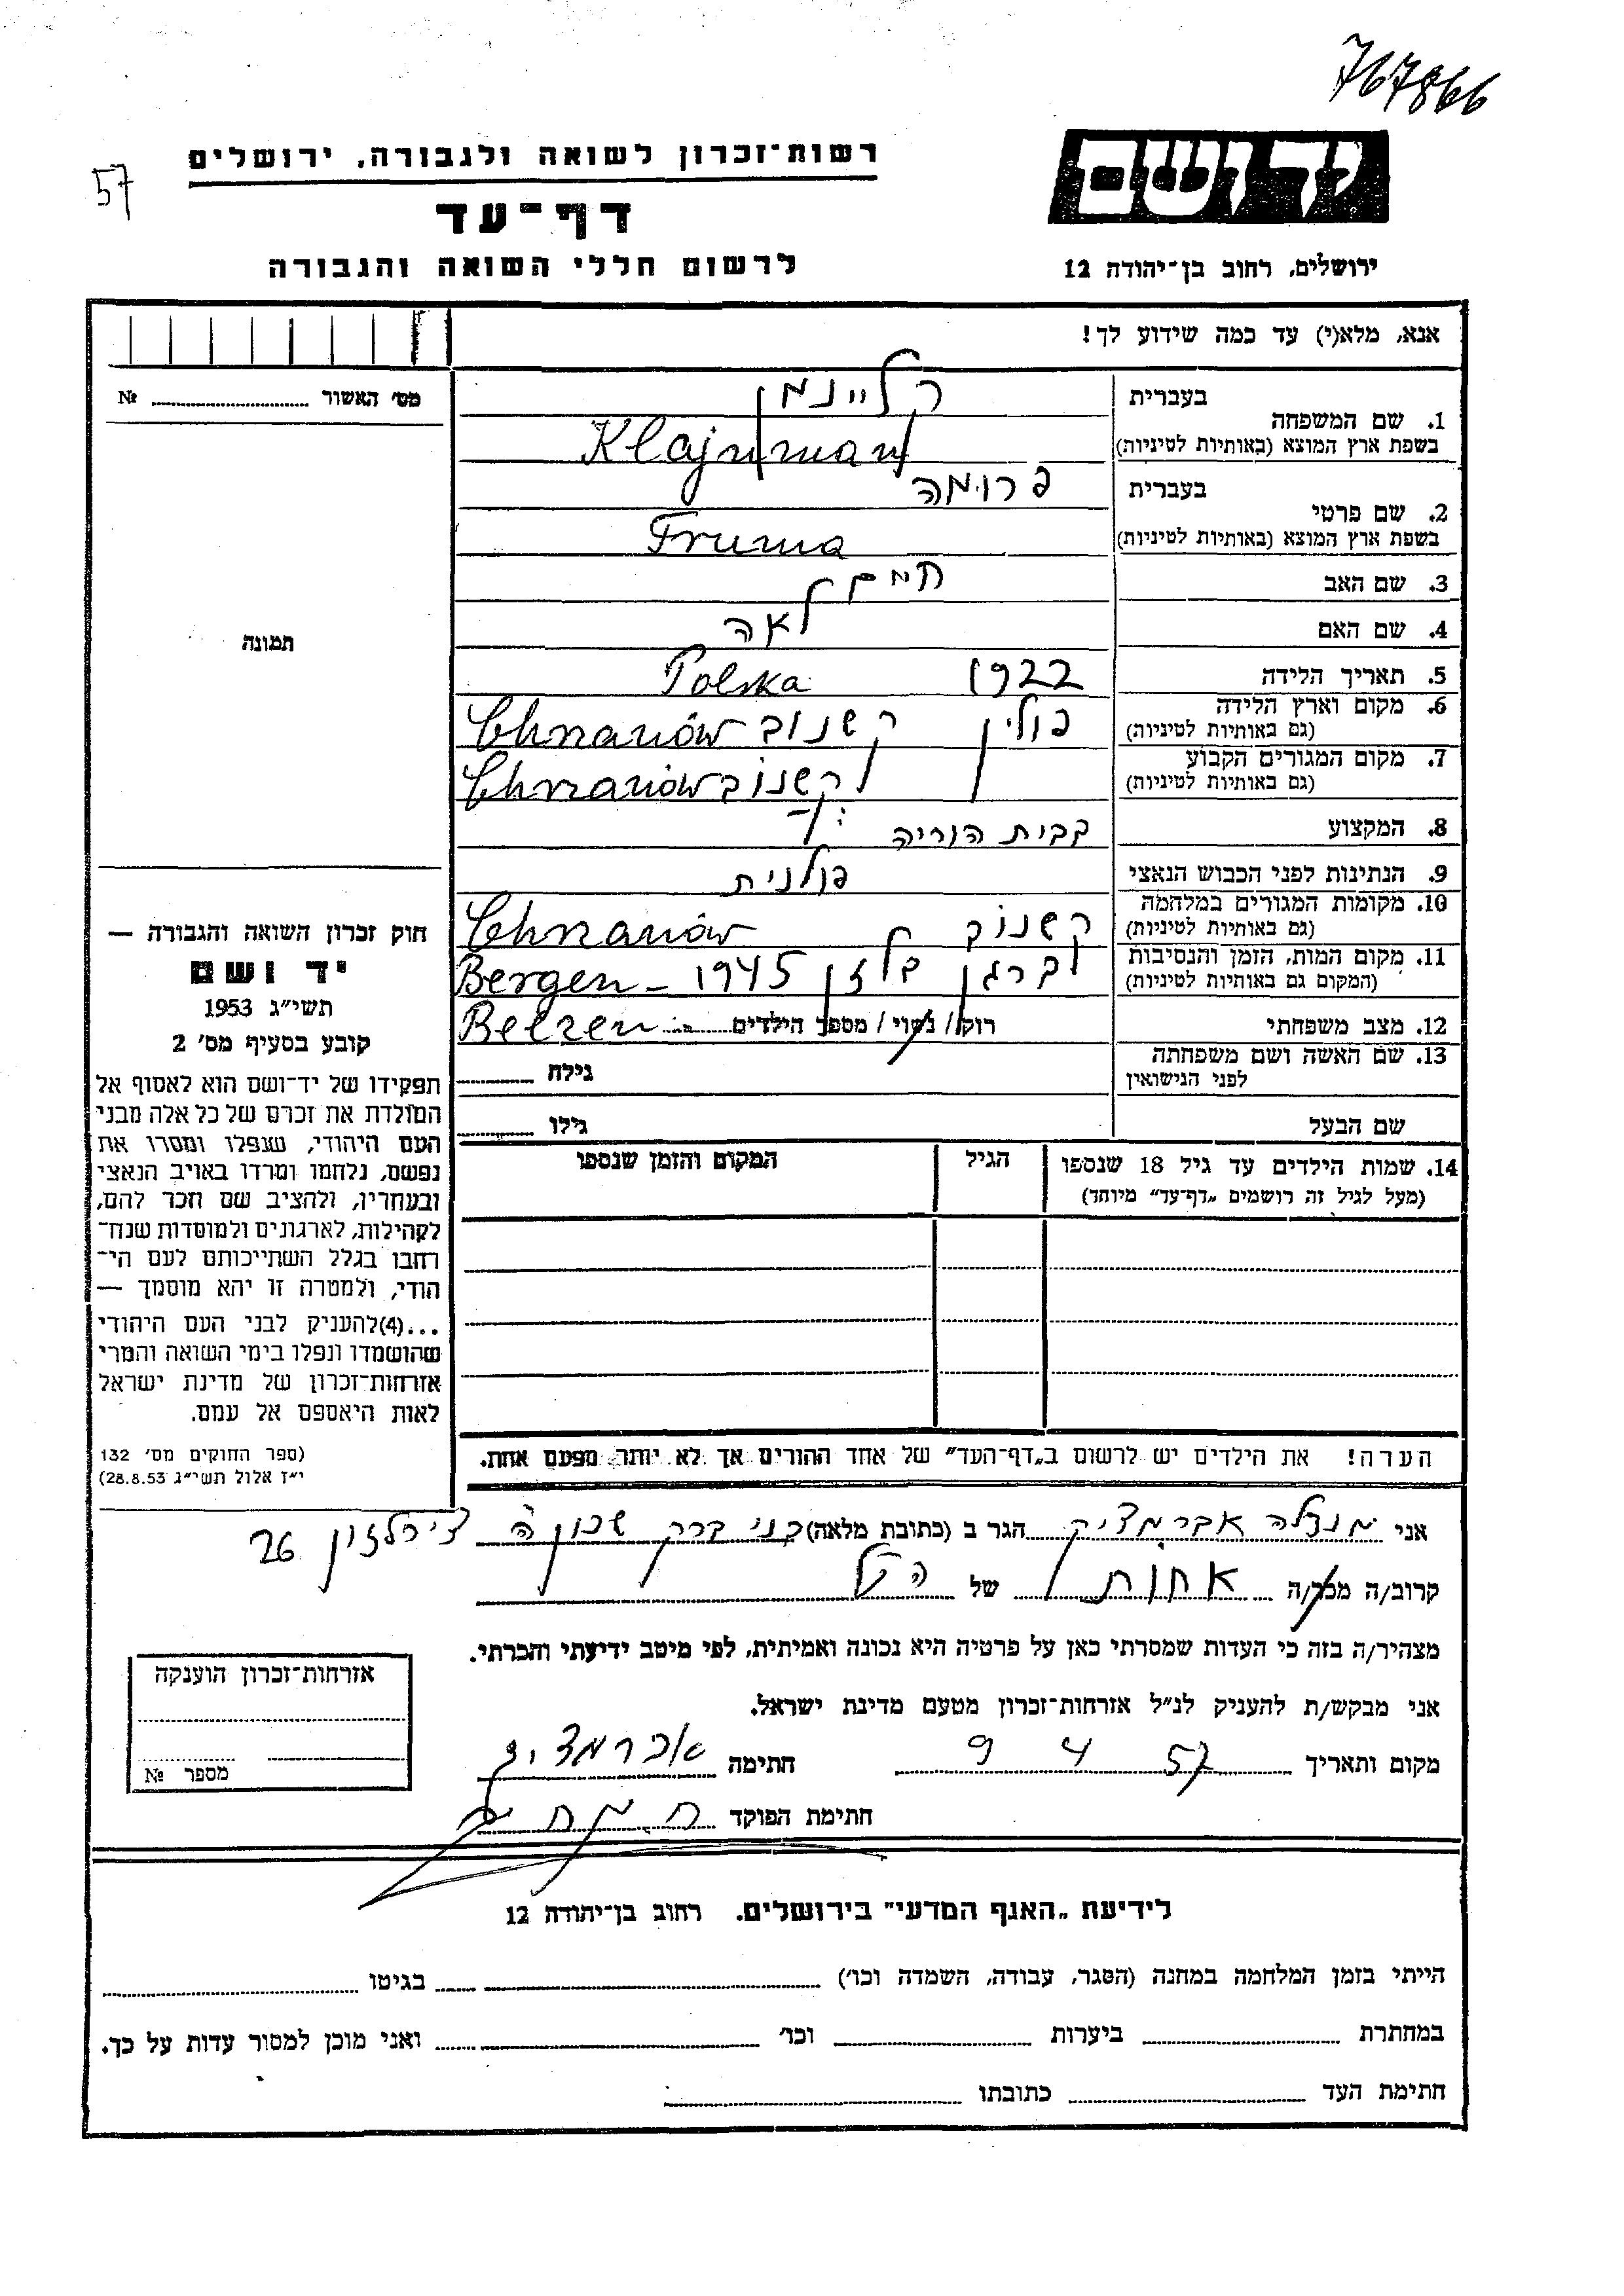 767866
יד ושם
ירושלים, רחוב בן־יהודה 12
רשות־זכרון לשואה ולגבורה, ירושלים
57
דף־עד
לרשום חללי השואה והגבורה
אנא, מלא(י) עד כמה שידוע לך!
מס׳ האשור № 
תמונה
בעברית קליינמן
1. שם המשפחה
בשפת ארץ המוצא (באותיות לטיניות) Klajnman
בעברית פרומה
2. שם פרטי
בשפת ארץ המוצא (באותיות לטיניות) Fruma
3. שם האב חיים
4. שם האם לאה
5. תאריך הלידה 1922 Polska
6. מקום וארץ הלידה פולין קשנוב Chrzanów
(גם באותיות לטיניות)
7. מקום המגורים הקבוע קשנוב Chrzanów
(גם באותיות לטיניות)
8. המקצוע בבית הוריה
9. הנתינות לפני הכבוש הנאצי פולנית
10. מקומות המגורים במלחמה קשנוב Chrzanów
(גם באותיות לטיניות)
11. מקום המות, הזמן והנסיבות ברגן בלזן 1945 - Bergen
(המקום גם באותיות לטיניות)
12. מצב משפחתי רוק/ נשוי/ מספר הילדים Belzen
13. שם האשה ושם משפחתה
לפני הנישואין
גילה
שם הבעל גילו
14. שמות הילדים עד גיל 18 שנספו הגיל המקום והזמן שנספו
(מעל לגיל זה רושמים „דף־עד״ מיוחד)
הערה! את הילדים יש לרשום ב„דף־העד״ של אחד ההורים אך לא יותר מפעם אחת.
חוק זכרון השואה והגבורה —
יד ושם
תשי״ג 1953
קובע בסעיף מס׳ 2
תפקידו של יד־ושם הוא לאסוף אל
המולדת את זכרם של כל אלה מבני
העם היהודי, שנפלו ומסרו את
נפשם, נלחמו ומרדו באויב הנאצי
ובעוזריו, ולהציב שם וזכר להם,
לקהילות, לארגונים ולמוסדות שנח־
רבו בגלל השתייכותם לעם הי־
הודי, ולמטרה זו יהא מוסמך —
...(4)להעניק לבני העם היהודי
שהושמדו ונפלו בימי השואה והמרי
אזרחות־זכרון של מדינת ישראל
לאות היאספם אל עמם.
(ספר החוקים מס׳ 132
י״ז אלול תשי״ג 28.8.53)
אני אברמציק הגר ב (כתובת מלאה) בני ברק שכונה 26
קרוב/ה מכר/ה אחות של הנ״ל
מצהיר/ה בזה כי העדות שמסרתי כאן על פרטיה היא נכונה ואמיתית, לפי מיטב ידיעתי והכרתי.
אני מבקש/ת להעניק לנ״ל אזרחות־זכרון מטעם מדינת ישראל.
מקום ותאריך 57 4 9 חתימה אברמציק
חתימת הפוקד
אזרחות־זכרון הוענקה
מספר №
לידיעת „האגף המדעי״ בירושלים. רחוב בן־יהודה 12
הייתי בזמן המלחמה במחנה (הסגר, עבודה, השמדה וכו׳) בגיטו
במחתרת ביערות וכו׳ ואני מוכן למסור עדות על כך.
חתימת העד כתובתו